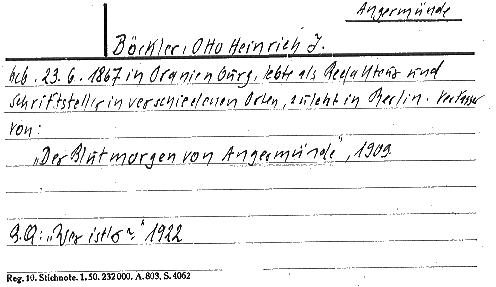 Angermünde
Böckler, Otto Heinrich J.
geb. 23.6.1867 in Oranienburg, lebte als Redakteur und
Schriftsteller in verschiedenen Orten, zuletzt in Berlin. Verfasser
von:
„Der Blutmorgen von Angermünde", 1909
B.Q.: „Wer ist's?" 1922
Reg. 10. Stichnote. 1. 50. 232000. A. 803. S. 4062